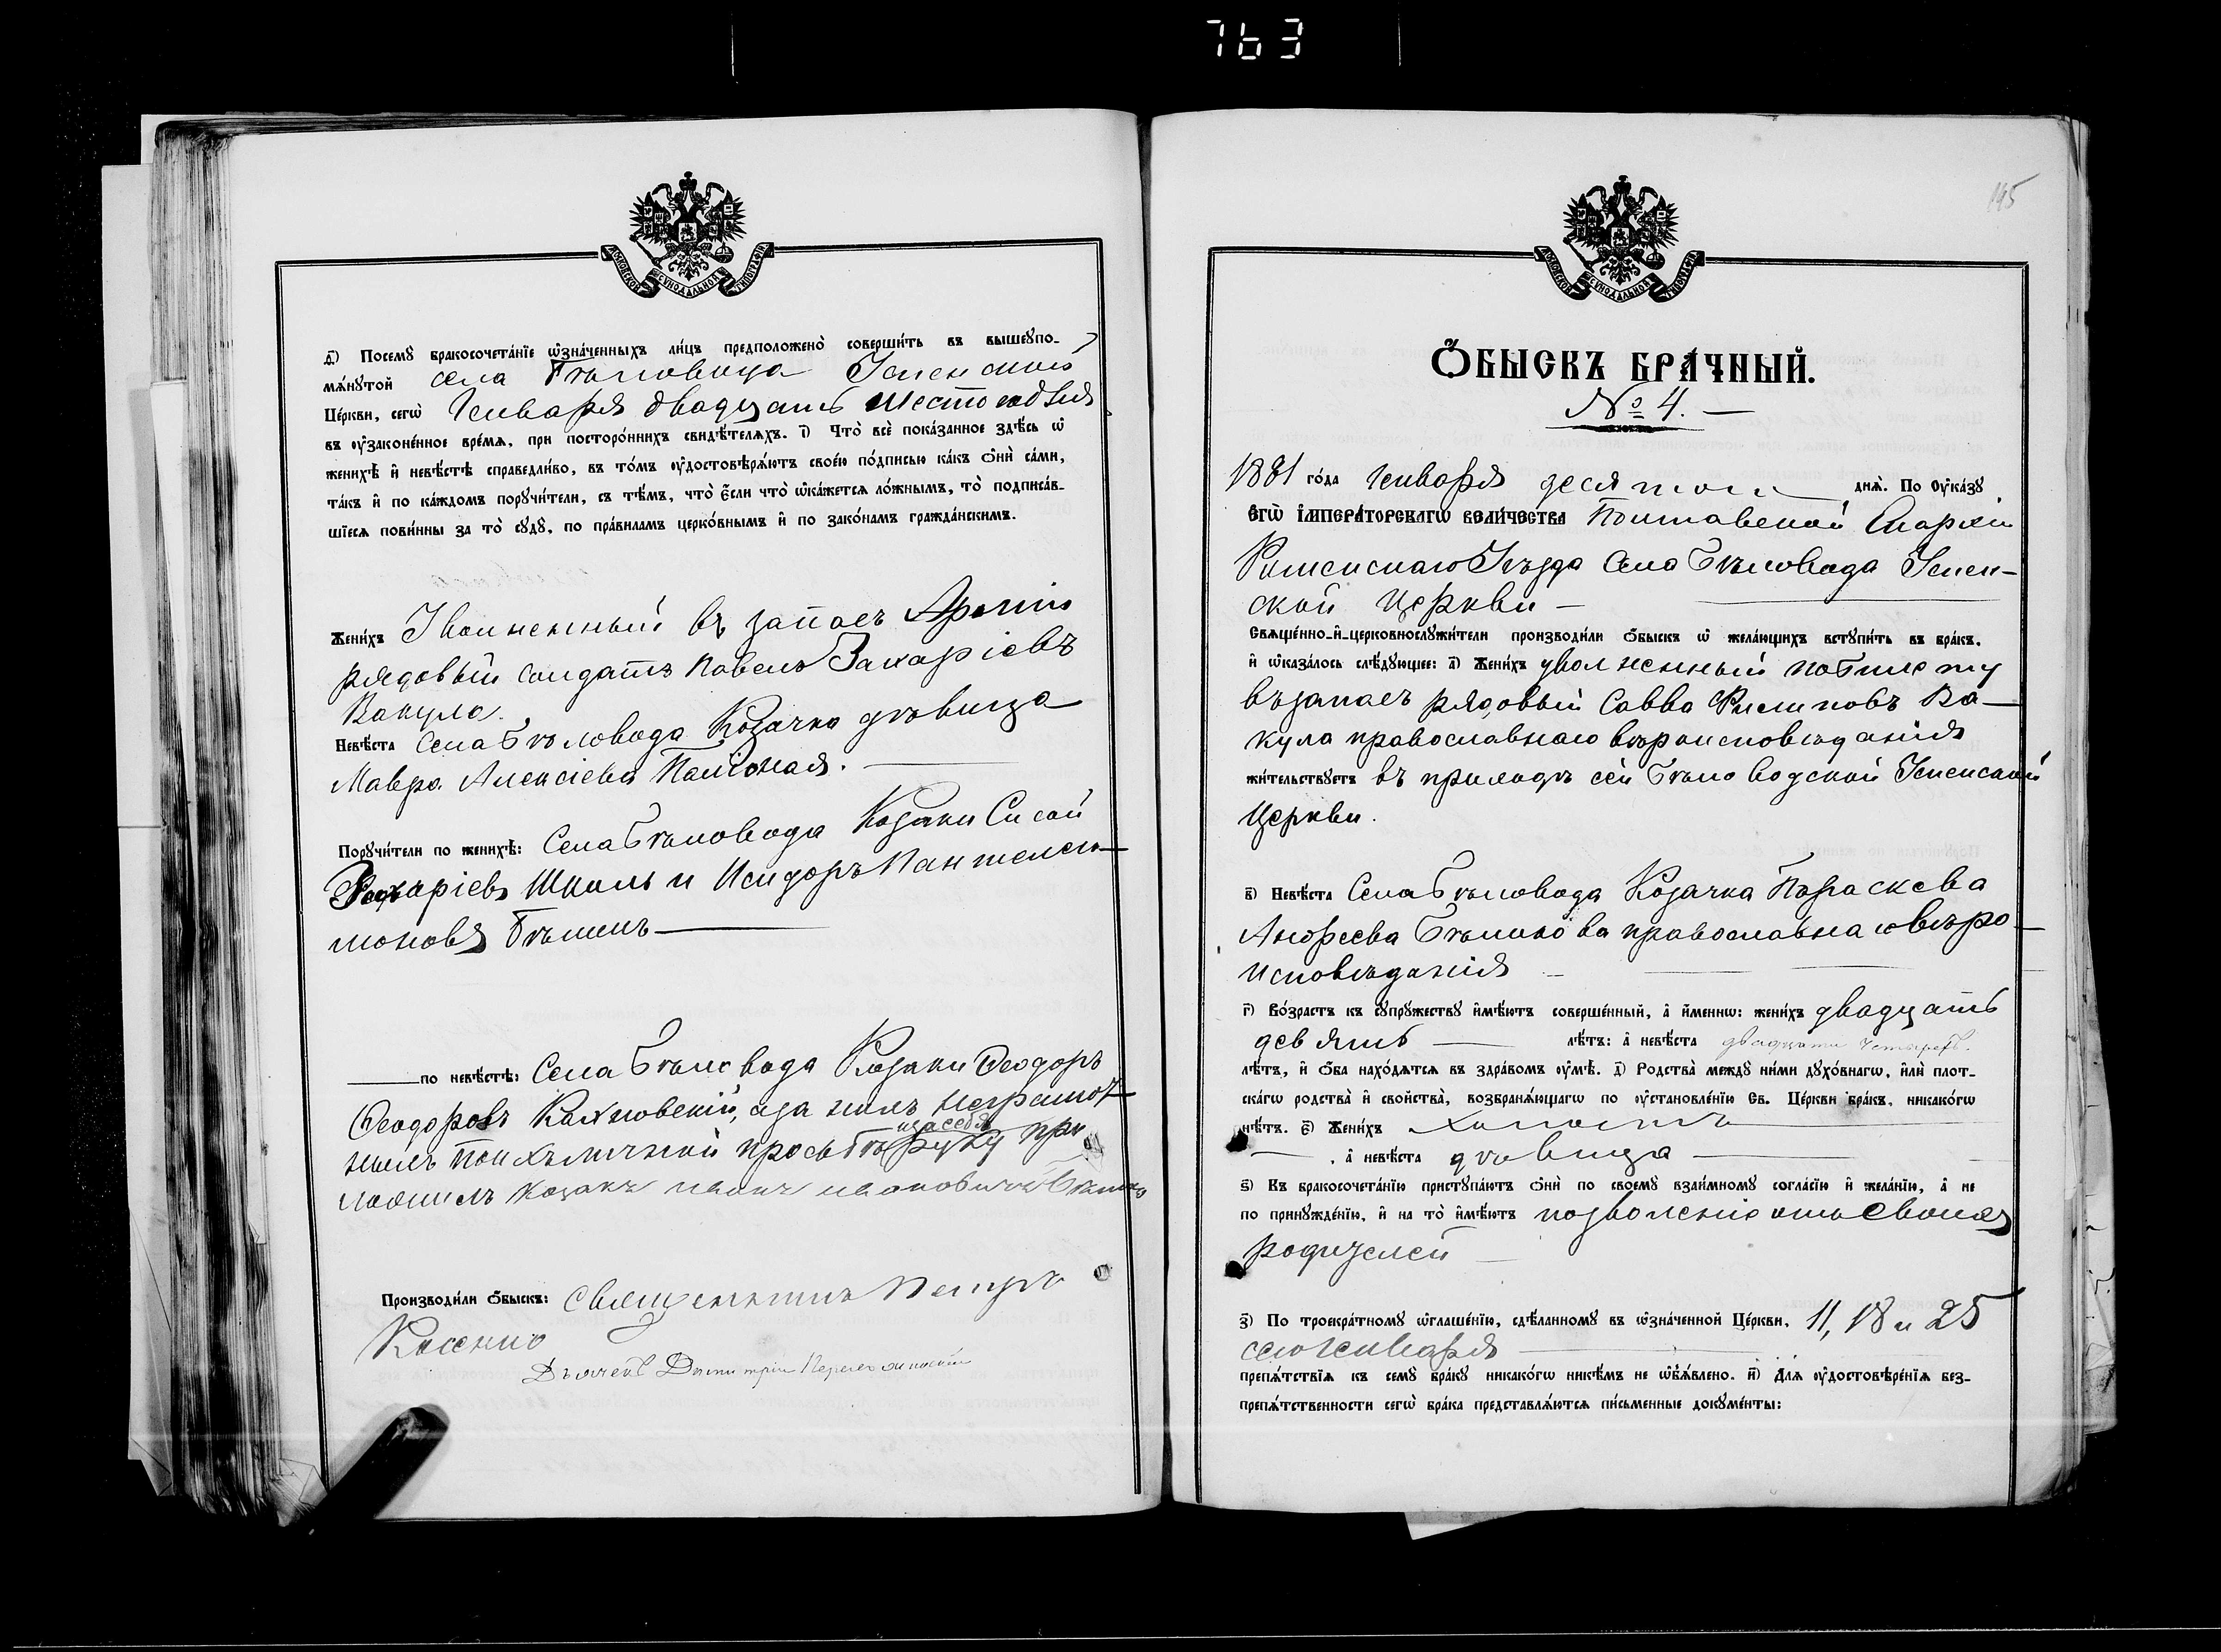 763
МОСКОВСКОЙ СѴНОДАЛЬНОЙ ТИПОГРАФІИ
д҃і) Посемꙋ бракосочета́нїе ѡ҆зна́ченныхъ ли́цъ предположено̀ соверши́ть въ вышеꙋпо-
мѧ́нꙋтой села Бѣловода Успенской
Це́ркви, сегѡ̀ Генваря двадцать шестого дня
въ ᲂу҆законе́нное вре́мѧ, при посторо́ннихъ свидѣ́телѧхъ. і҃) Что̀ всѐ пока́занное здѣ́сь ѡ҆
женихѣ̀ и҆ невѣ́стѣ справедли́во, въ то́мъ ᲂу҆достовѣрѧ́ютъ свое́ю по́дписью ка́къ ѻ҆нѝ са́ми,
та́къ и҆ по ка́ждомъ порꙋчи́тели, съ тѣ́мъ, что̀ є҆́сли что̀ ѡ҆ка́жетсѧ ло́жнымъ, то̀ подписа́в-
шїесѧ пови́нны за то̀ сꙋдꙋ̀, по пра́виламъ церко́внымъ и҆ по зако́намъ гражда́нскимъ.
Жени́хъ Уволненный въ запасъ Армии
рядовый солдатъ Павелъ Захаріевъ
Вакула.
Невѣ́ста Села Бѣловода Козачка дѣвица
Мавра Алексіева
Порꙋчи́тели по женихѣ̀: Села Бѣловода Козаки Сисой
Захаріевъ Шкиль и Исидоръ Пантелеи-
моновъ Бѣликъ
по невѣ́стѣ: Села Бѣловода Козаки Ѳеодоръ
Ѳеодоровъ а за нихъ неграмот-
ныхъ по ихъ личной просьбѣ и за себя руку при
ложилъ козакъ Иванъ Ивановичъ
Производи́ли ѻ҆́быскъ: Священникъ Петръ
Косенко
Дьячекъ Димитрій
195
МОСКОВСКОЙ СѴНОДАЛЬНОЙ ТИПОГРАФІИ
Ѻ҆́БЫСКЪ БРА́ЧНЫЙ.
№ 4.
1881 го́да Генваря десятого днѧ̀. По ᲂу҆ка́зꙋ
Є҆гѡ̀ І҆мпера́торскагѡ вели́чества Полтавской Епархіи
Роменскаго Уѣзда Села Бѣловода Успен-
ской Церкви
Свѧще́нно-и҆-церковнослꙋжи́тели производи́ли ѻ҆́быскъ ѡ҆ жела́ющихъ встꙋпи́ть въ бра́къ,
и҆ ѡ҆каза́лось слѣ́дꙋющее: а҃) Жени́хъ уволненный по билету
въ запасъ рядовый Савва Филиповъ Ва-
кула православнаго вѣроисповѣданія
жи́тельствꙋетъ въ приходѣ сей Бѣловодской Успенской
Церкви.
в҃) Невѣ́ста Села Бѣловода Козачка Параскева
Андреева Бѣликова православнаго вѣро-
исповѣданія
г҃) Во́зрастъ къ сꙋпрꙋ́жествꙋ и҆мѣ́ютъ соверше́нный, а҆ и҆́меннѡ: жени́хъ двадцать
девять лѣ́тъ: а҆ невѣ́ста двадцати четырехъ.
лѣ́тъ, и҆ ѻ҆́ба нахо́дѧтсѧ въ здра́вомъ ᲂу҆мѣ̀. д҃) Родства̀ междꙋ̀ ни́ми дꙋхо́внагѡ, и҆лѝ плот-
ска́гѡ родства̀ и҆ сво́йства, возбранѧ́ющагѡ по ᲂу҆становле́нїю Св. Це́ркви бра́къ, никако́гѡ
нѣ́тъ. є҃) Жени́хъ холостъ
, а҆ невѣ́ста дѣвица
ѕ҃) Къ бракосочета́нїю пристꙋпа́ютъ ѻ҆нѝ по своемꙋ̀ взаи́мномꙋ согла́сїю и҆ жела́нїю, а҆ не
по принꙋжде́нїю, и҆ на то̀ и҆мѣ́ютъ позволеніе отъ своихъ
родителей
з҃) По троекра́тномꙋ ѡ҆глаше́нїю, сдѣ́ланномꙋ въ ѡ҆зна́ченной Це́ркви, 11, 18 и 25
сего Генваря
препѧ́тствїѧ къ семꙋ̀ бра́кꙋ никако́гѡ никѣ́мъ не ѡ҆б̾ѧ́влено. и҃) Длѧ ᲂу҆достовѣре́нїѧ без-
препѧ́тственности сегѡ̀ бра́ка представлѧ́ютсѧ пи́сьменные докꙋме́нты: